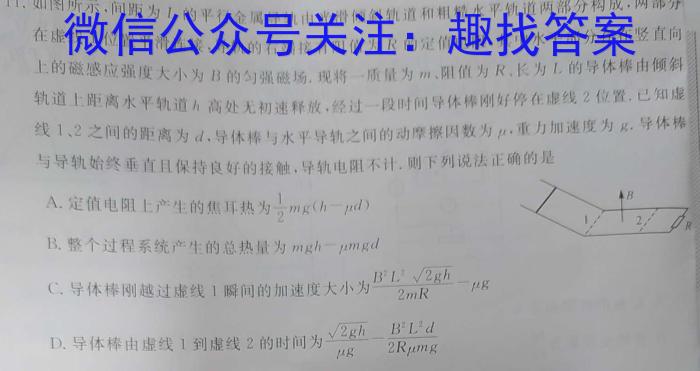 11.如图所示,间距为L的平行金属导轨由光滑倾斜轨道和粗糙水平轨道两部分构成,两部分
微信公众号关注：趣找答案
上的磁感应强度大小为B的匀强磁场.现将一质量为m、阻值为R、长为L的导体棒由倾斜
轨道上距离水平轨道h高处无初速释放,经过一段时间导体棒刚好停在虚线2位置.已知虚
线1、2之间的距离为d,导体棒与水平导轨之间的动摩擦因数为μ,重力加速度为g.导体棒
与导轨始终垂直且保持良好的接触,导轨电阻不计.则下列说法正确的是
A.定值电阻上产生的焦耳热为\frac{1}{2}mg(h-μd)
B.整个过程系统产生的总热量为mgh-μmgd
C.导体棒刚越过虚线1瞬间的加速度大小为\frac{B²L²\sqrt{2gh}}{2mR}-μg
D.导体棒由虚线1到虚线2的时间为\frac{\sqrt{2gh}}{μg}-\frac{B²L²d}{2Rμmg}
B
1
2
R